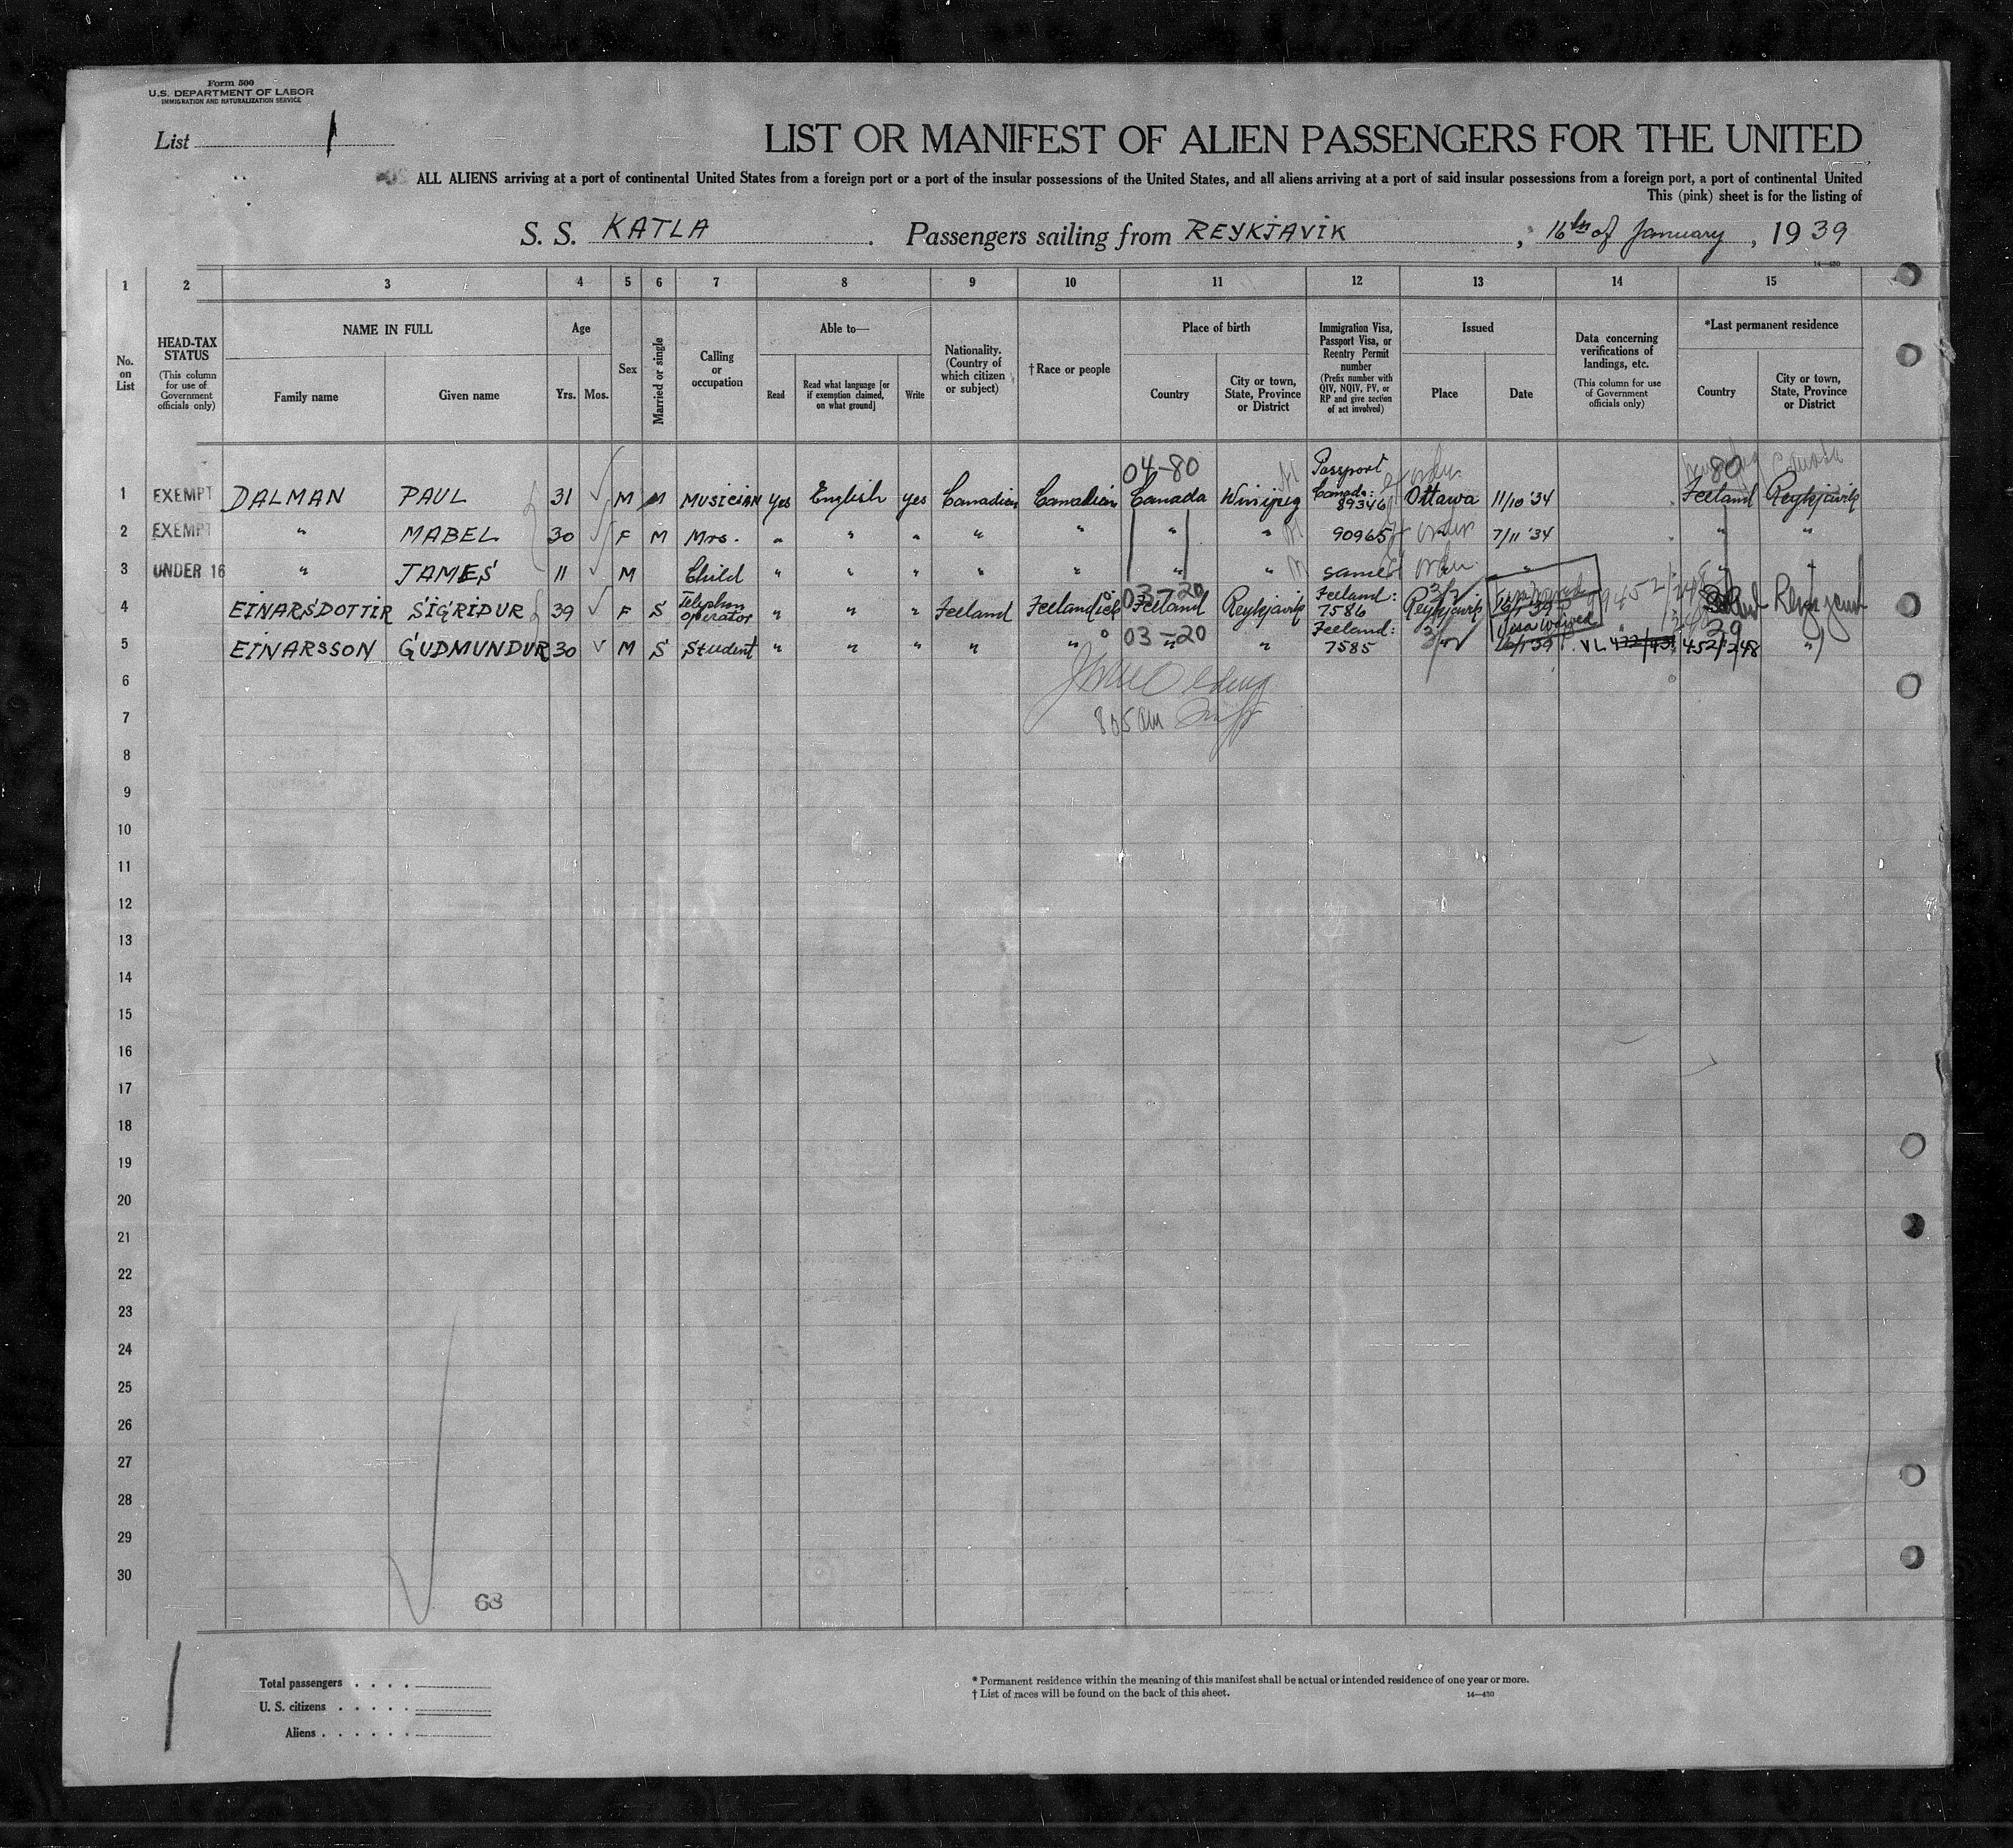 Form 500
U.S. DEPARTMENT OF LABOR
IMMIGRATION AND NATURALIZATION SERVICE
List 1
LIST OR MANIFEST OF ALIEN PASSENGERS FOR THE UNITED
ALL ALIENS arriving at a port of continental United States from a foreign port or a port of the insular possessions of the United States, and all aliens arriving at a port of said insular possessions from a foreign port, a port of continental United
This (pink) sheet is for the listing of
S. S. KATLA . Passengers sailing from REYKJAVIK , 16th of January , 1939
14—430
1 2 3 4 5 6 7 8 9 10 11 12 13 14 15
No. on List
HEAD-TAX STATUS
(This column for use of Government officials only)
NAME IN FULL
Family name
Given name
Age
Yrs.
Mos.
Sex
Married or single
Calling or occupation
Able to—
Read
Read what language [or if exemption claimed, on what ground]
Write
Nationality. (Country of which citizen or subject)
† Race or people
Place of birth
Country
City or town, State, Province or District
Immigration Visa, Passport Visa, or Reentry Permit number
(Prefix number with QIV, NQIV, PV, or RP and give section of act involved)
Issued
Place
Date
Data concerning verifications of landings, etc.
(This column for use of Government officials only)
*Last permanent residence
Country
City or town, State, Province or District
04-80 Passport 80 Canada
1 EXEMPT DALMAN PAUL 31 M M MUSICIAN yes English yes Canadian Canadian Canada Winipeg Canada: 89346 Ottawa 11/10 '34 Iceland Reykjavik
2 EXEMPT " MABEL 30 F M Mrs. " " " " " " " 90965 " 7/11 '34 " "
3 UNDER 16 " JAMES 11 M Child " " " " " " " same " " "
4 EINARSDOTTIR SIGRIDUR 39 F S Telephon operator " " " Iceland Icelandick 03-20 Iceland Reykjavik Iceland: 7586 Reykjavik 16/1 39
5 EINARSSON GUDMUNDUR 30 M S Student " " " " " 03-20 " " Iceland: 7585 " Visa waived 16/1 39 VL 452/248 39 "
805 am
6
7
8
9
10
11
12
13
14
15
16
17
18
19
20
21
22
23
24
25
26
27
28
29
30
68
Total passengers . . . .
U. S. citizens . . . . .
Aliens . . . . . .
* Permanent residence within the meaning of this manifest shall be actual or intended residence of one year or more.
† List of races will be found on the back of this sheet.
14—430